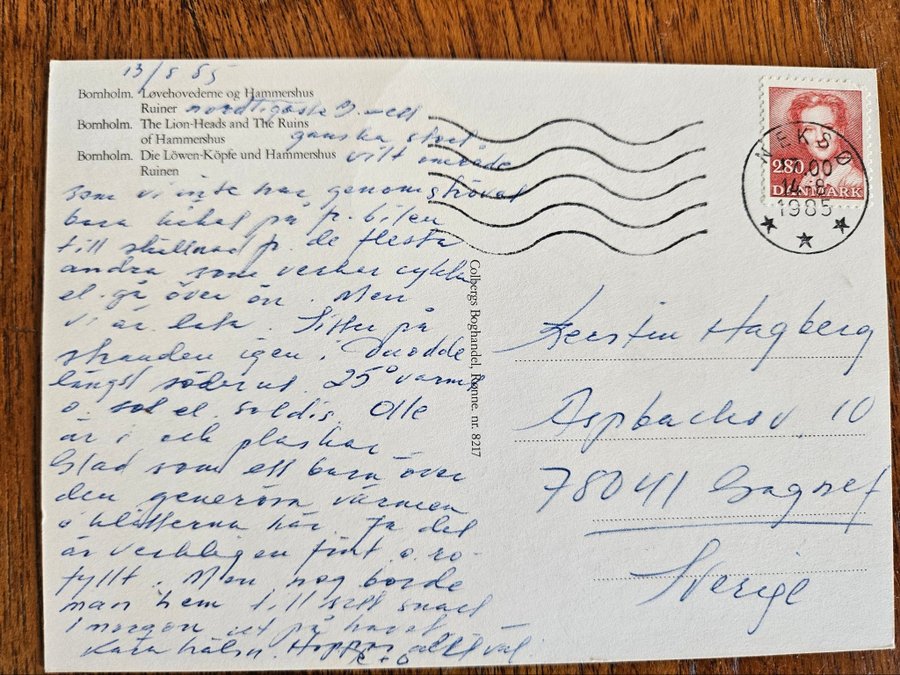 13/8 85
Bornholm. Løvehovederne og Hammershus
Ruiner nordligaste D. - ett
Bornholm. The Lion-Heads and The Ruins
of Hammershus
ganska stort
Bornholm. Die Löwen-Köpfe und Hammershus
Ruinen
vilt område
som vi inte har genomströvat
bara kikat på fr. bilen
till skillnad fr. de flesta
andra som verkar cykla
el. gå över ön. Men
vi är lata. Sitter på
stranden igen i Duodde
längst söderut. 25° varmt
o. sol el. soldis. Olle
är i och plaskar
Glad som ett barn över
den generösa värmen
i klipporna här. Ja det
är verkligen fint o. ro-
fyllt. Men nog borde
man hem till sitt snart
I morgon ut på havet
Kära hälsn. Hoppas allt väl
NEKSØ
.00
14-8
1985
280
DANMARK
Colbergs Boghandel, Rønne. nr. 8217
Kerstin Hagberg
Aspbacksv. 10
78041 Gagnef
Sverige